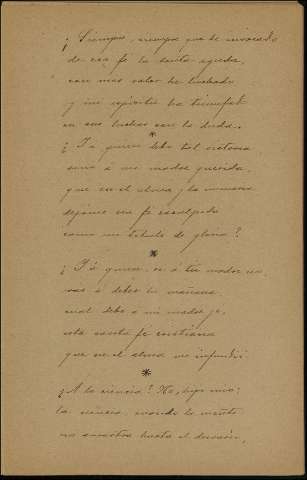 ¡Siempre, siempre que he invocado
de esa fé la santa ayuda,
con mas valor he luchado
y mi espíritu ha triunfado
en sus luchas con la duda.
*
¿Á quien debo tal victoria
sino á mi madre querida,
que en el alma y la memoria
dejóme esa fé esculpida
como un título de gloria?
*
¿Á quien, si á tu madre no,
vas á deber tu mañana
cual debo á mi madre yo,
esta santa fé cristiana
que en el alma me infundió
*
¿A la ciencia? No, hijo mio:
la ciencia, cuando la mente
no arrastra hasta el